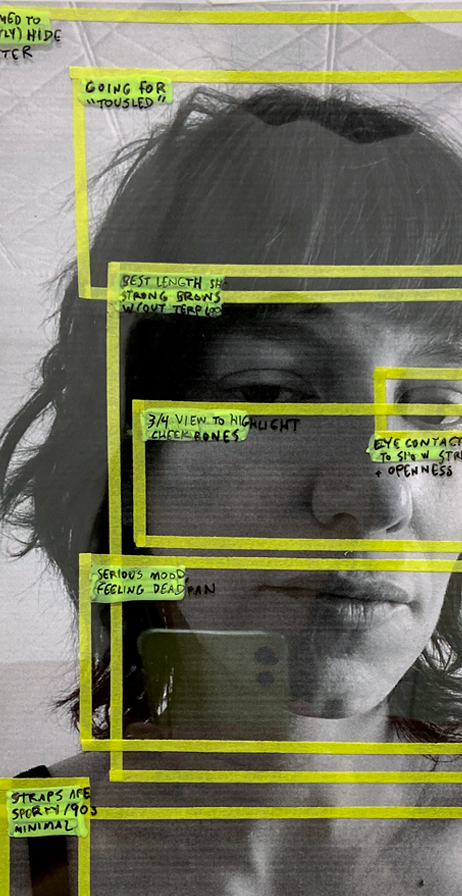 MED TO
LY) HIDE
TER
GOING FOR
"TOUSLED"
BEST LENGTH
STRONG BROWS
W/OUT
3/4 VIEW TO HIGHLIGHT
CHEEKBONES
EYE CONTACT
TO SHOW STR
+ OPENNESS
SERIOUS MOOD,
FEELING DEADPAN
STRAPS ARE
SPORTY/90s
MINIMAL